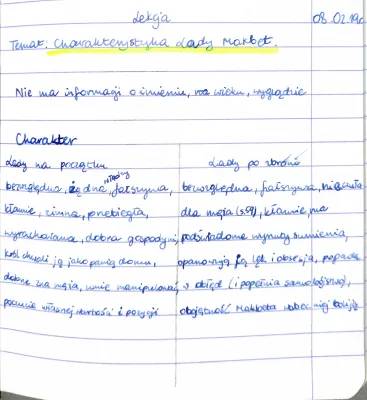 Lekcja 08.02.19
Temat: Charakterystyka Lady Makbet.
Nie ma informacji o imieniu, wieku, wyglądzie
Charakter
Lady na początku
bezwzględna, żądna władzy, fałszywa,
kłamie, zimna, przebiegła,
wyrachowana, dobra gospodyni,
król chwali ją jako panią domu,
dobrze zna męża, umie manipulować,
poczucie własnej wartości i pozycji
Lady po zbrodni
bezwzględna, fałszywa, nieczuła
dla męża kłamie, ma
podświadome wyrzuty sumienia,
opanowują ją lęk i obsesja, popada
w obłęd (i popełnia samobójstwo),
obojętność Makbeta wobec niej